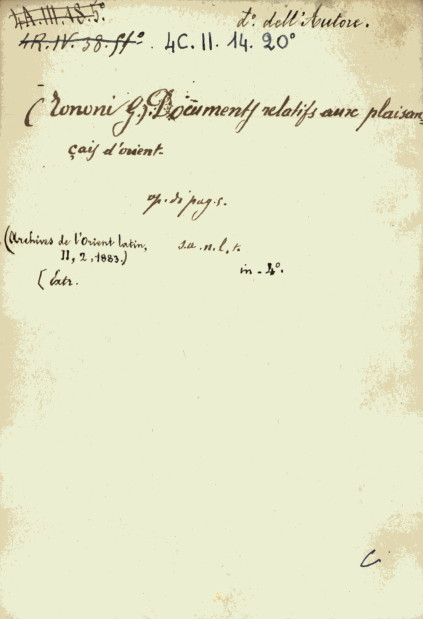 4A.III.18.5°
d°. dell'Autore.
4R.IV.38.ff° . 4C.II.14.20°
(Tononi G.) Documents relatifs aux plaisan_
çais d'orient_
op. di pag. 5.
(Archives de l'Orient latin, s.a.n.l.t.
II, 2, 1883.)
in_4°.
[Extr.
C